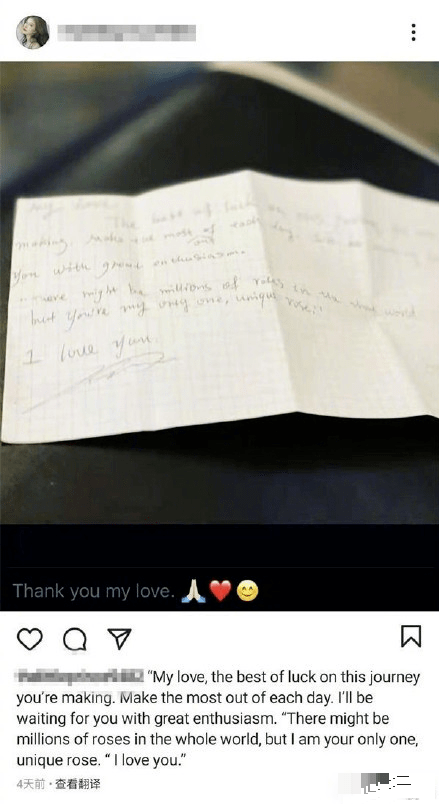 My love
The best of luck on
making. Make the most of each day
out
you with great enthusiasm.
"There might be millions of roses in the whole world
but you're my only one, unique rose."
I love you.
Thank you my love. 🙏🏻❤️😊
"My love, the best of luck on this journey
you're making. Make the most out of each day. I'll be
waiting for you with great enthusiasm. "There might be
millions of roses in the whole world, but I am your only one,
unique rose. " I love you."
4天前 · 查看翻译